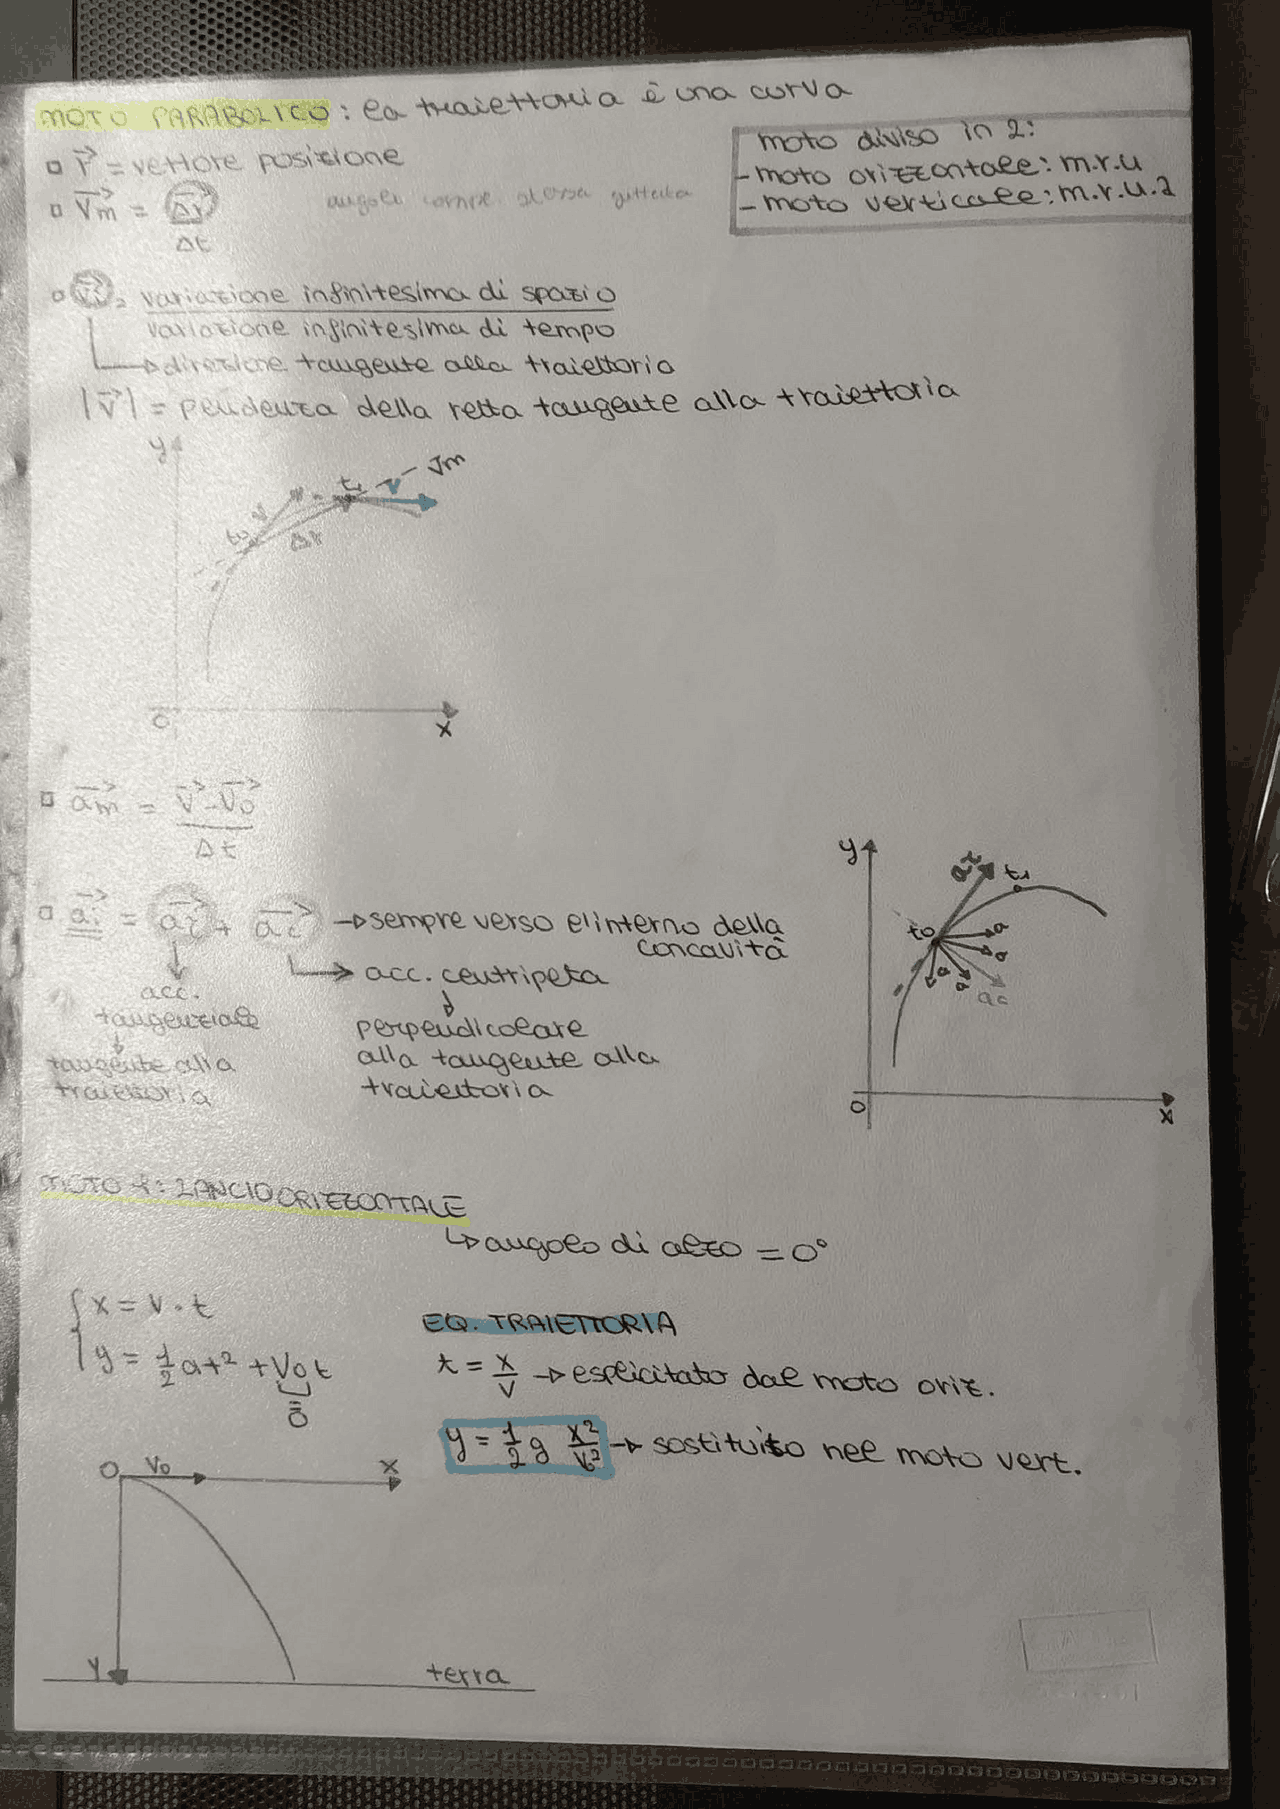 MOTO PARABOLICO: la traiettoria è una curva
moto diviso in 2:
- moto orizzontale: m.r.u
- moto verticale: m.r.u.a
□ r⃗ = vettore posizione
□ v⃗m = Δr⃗
Δt
angoli comple. stessa gittata
variazione infinitesima di spazio
variazione infinitesima di tempo
→ direzione tangente alla traiettoria
|v⃗| = pendenza della retta tangente alla traiettoria
y
t0 v t1 v Vm
Δr
O x
□ a⃗m = v⃗-v⃗0
Δt
□ a⃗i = a⃗t + a⃗c → sempre verso l'interno della
concavità
→ acc. centripeta
acc.
tangenziale
↓
tangente alla
traiettoria
↓
perpendicolare
alla tangente alla
traiettoria
y
at t1
t0 a
a
a a
ac
O x
MOTO 1: LANCIO ORIZZONTALE
↳ angolo di alzo = 0°
x = v · t
y = ½ at² + v0t
=
0
EQ. TRAIETTORIA
t = x/v → esplicitato dal moto oriz.
y = ½ g x²/v² → sostituito nel moto vert.
O V0 x
y
terra